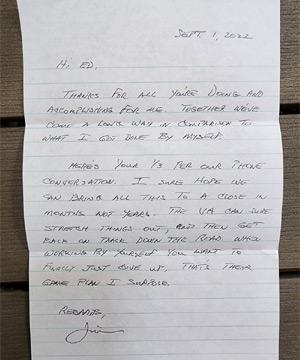 SEPT. 1, 2022
HI ED,
THANKS FOR ALL YOU'RE DOING AND
ACCOMPLISHING FOR ME. TOGETHER WE'VE
COME A LONG WAY IN COMPARISON TO
WHAT I GOT DONE BY MYSELF.
HERE'S YOUR 1/3 PER OUR PHONE
CONVERSATION. I SURE HOPE WE
CAN BRING ALL THIS TO A CLOSE IN
MONTHS NOT YEARS. THE VA CAN SURE
STRETCH THINGS OUT, AND THEN GET
BACK ON TRACK DOWN THE ROAD. WHEN
WORKING BY YOURSELF YOU WANT TO
FINALLY JUST GIVE UP. THAT'S THEIR
GAME PLAN I SUPPOSE.
REGARDS,
Jim